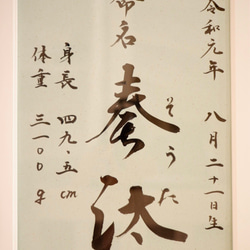 令和元年 八月二十一日生
命名 奏汰
そうた
身長 四九.五cm
体重 三一〇〇g